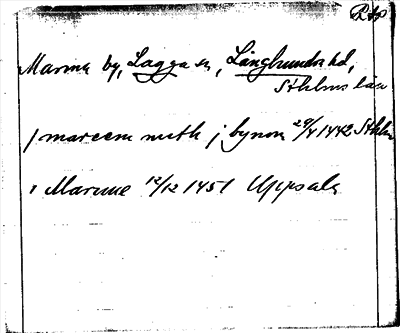 RAp
Marma by, Lagga sn, Långhundra hd,
Sthlms län
j mareem meth j bynom 29/4 1442 Sthlm
i Marme 12/12 1451 Uppsala